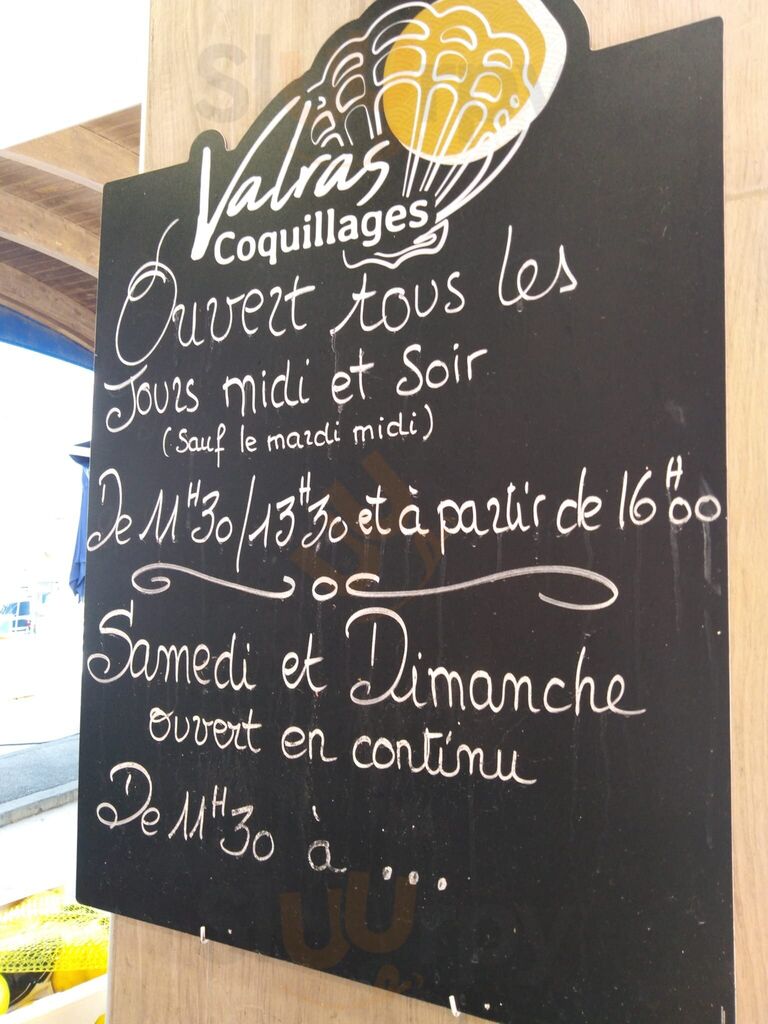 Valras
Coquillages
Ouvert tous les
Jours midi et Soir
(Sauf le mardi midi)
De 11H30/13H30 et à partir de 16H00
Samedi et Dimanche
ouvert en continu
De 11H30 à ...